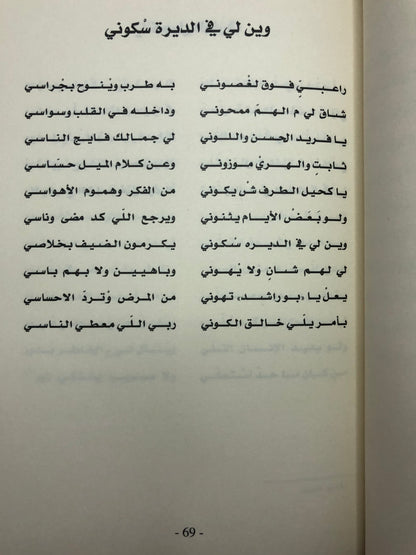 وين لي في الديرة سْكوني
راعبيَ فوق لغْصوني به طرب ويْنوح بجْراسي
شاق لي م الهمَ ممحوني وداخله في القلب وسواسي
يا فريد الحسن واللوني لي جمالك فايج الناسي
ثابتٍ والهريْ موزوني وعن كلام الميل حسَاسي
يا كحيل الطرف شْ يكوني من الفكر وهموم الأهواسي
ولو بَعَضْ الأيام يثنوني ويرجع اللَي كد مضى وناسي
وين لي في الديره سْكوني يكرمون الضيف بخلاصي
لي لهم شانٍ ولا يْهوني وباهيين ولا بهم باسي
يعل يا «بوراشد» تهوني من المرض وُتردَ الاحساسي
بأمر يلَي خالق الكوني ربي اللَي معطي الناسي
- 69 -